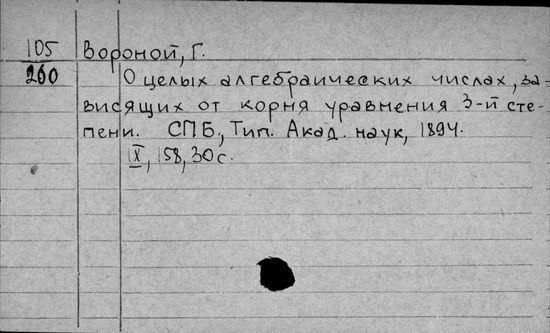 105 Вороной, Г.
260 О целых алгебраических числах, за-
висящих от корня уравнения 3-й сте-
пени. СПБ., Тип. Акад. наук, 1894.
IX, 158, 30 с.